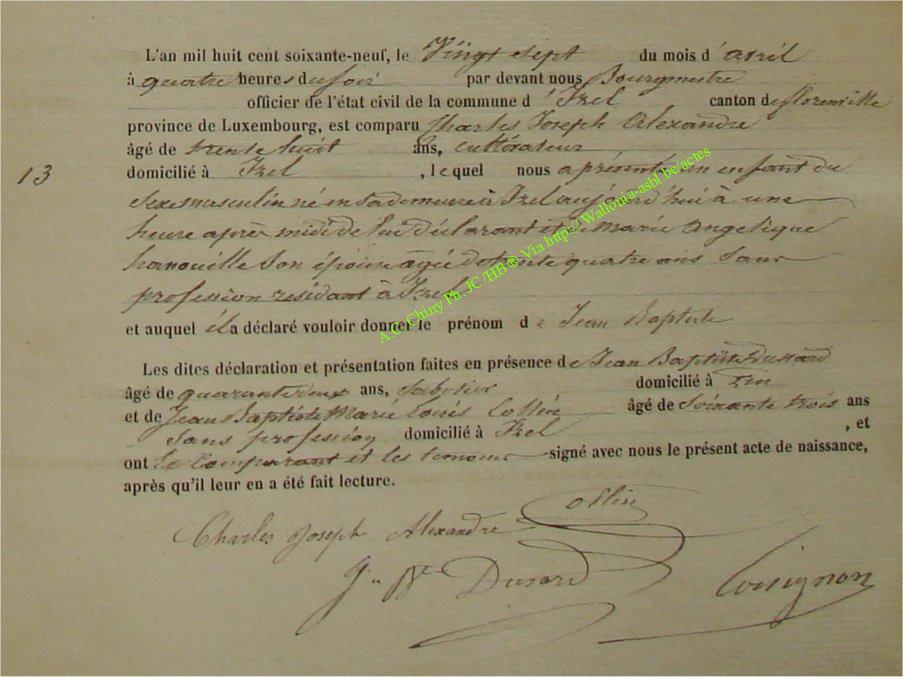 L'an mil huit cent soixante-neuf, le Vingt sept du mois d'avril
à quatre heures du soir par devant nous Bourgmestre
officier de l'état civil de la commune d'Izel canton de florenville
province de Luxembourg, est comparu Charles Joseph Alexandre
âgé de trente huit ans, cultivateur
13 domicilié à Izel, lequel nous a présenté un enfant du
sexe masculin né en sa demeure à Izel aujourd'hui à une
heure après midi de lui déclarant et de Marie Angelique
hanouille son épouse agée de trente quatre ans sans
profession residant à Izel
et auquel il a déclaré vouloir donner le prénom de Jean Baptiste
Les dites déclaration et présentation faites en présence de Jean Baptiste Dussard
âgé de quarante deux ans, sabotier domicilié à
et de Jean Baptiste Marie Louis Collin âgé de soixante trois ans
sans profession domicilié à Izel, et
ont le comparant et les temoins signé avec nous le présent acte de naissance,
après qu'il leur en a été fait lecture.
Collin
Charles Joseph Alexandre
Jn Bte Dusard
A.C. Chiny Ph. JC /HB® Via http://Wallonia-asbl.be/actes